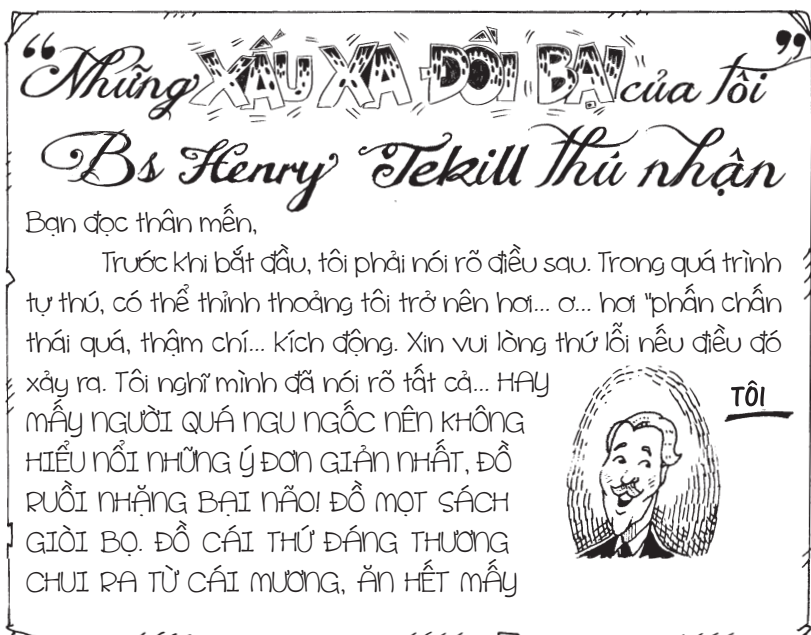 “Những XẤU XA ĐỒI BẠI của tôi”
Bs Henry Jekill thú nhận
Bạn đọc thân mến,
Trước khi bắt đầu, tôi phải nói rõ điều sau. Trong quá trình
tự thú, có thể thỉnh thoảng tôi trở nên hơi... ơ... hơi "phấn chấn
thái quá, thậm chí... kích động. Xin vui lòng thứ lỗi nếu điều đó
xảy ra. Tôi nghĩ mình đã nói rõ tất cả... HAY
MẤY NGƯỜI QUÁ NGU NGỐC NÊN KHÔNG
HIỂU NỔI NHỮNG Ý ĐƠN GIẢN NHẤT, ĐỒ
RUỒI NHẶNG BẠI NÃO! ĐỒ MỌT SÁCH
GIÒI BỌ. ĐỒ CÁI THỨ ĐÁNG THƯƠNG
CHUI RA TỪ CÁI MƯƠNG, ĂN HẾT MẤY
TÔI